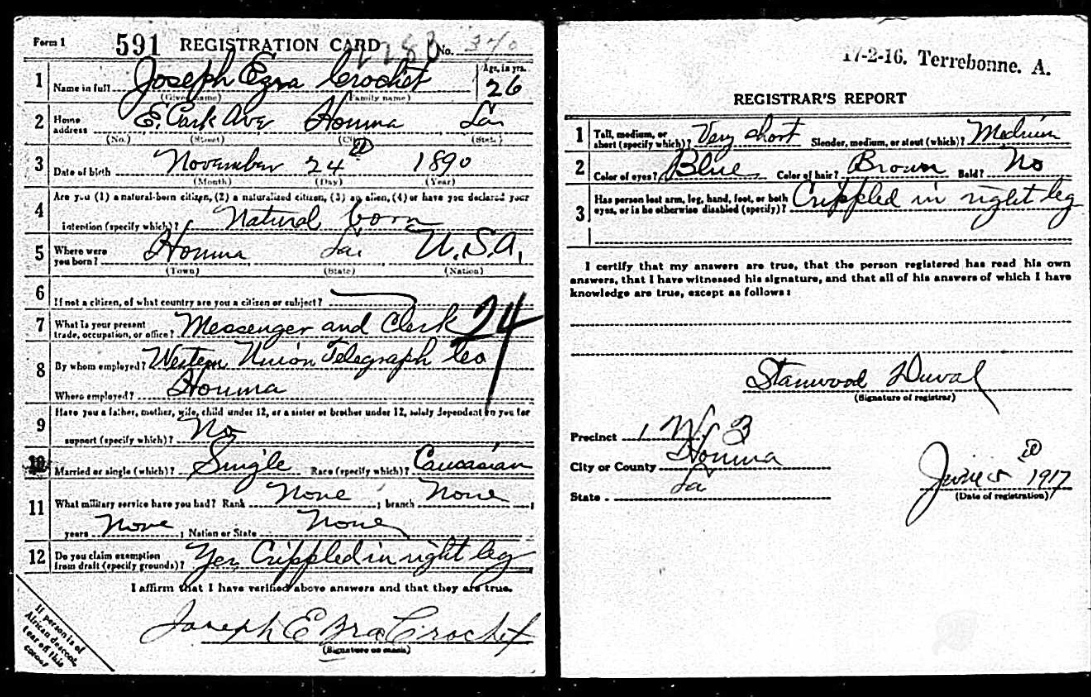 Form 1 591 REGISTRATION CARD No. 340
1 Name in full Joseph Ezra Crochet Age, in yrs. 26
(Given name) (Family name)
2 Home address E. Park Ave Houma La
(No.) (Street) (City) (State)
3 Date of birth November 24 1890
(Month) (Day) (Year)
4 Are you (1) a natural-born citizen, (2) a naturalized citizen, (3) an alien, (4) or have you declared your
intention (specify which)? Natural born
5 Where were you born? Houma La U.S.A.
(Town) (State) (Nation)
6 If not a citizen, of what country are you a citizen or subject?
7 What is your present trade, occupation, or office? Messenger and Clerk 24
8 By whom employed? Western Union Telegraph Co
Where employed? Houma
9 Have you a father, mother, wife, child under 12, or a sister or brother under 12, solely dependent on you for
support (specify which)? No
10 Married or single (which)? Single Race (specify which)? Caucasian
11 What military service have you had? Rank None ; branch None ;
years None ; Nation or State None
12 Do you claim exemption from draft (specify grounds)? Yes Crippled in right leg
I affirm that I have verified above answers and that they are true.
Joseph Ezra Crochet
(Signature or mark)
If person is of
African descent,
tear off this
corner
17-2-16. Terrebonne. A.
REGISTRAR'S REPORT
1 Tall, medium, or short (specify which)? Very short Slender, medium, or stout (which)? Medium
2 Color of eyes? Blue Color of hair? Brown Bald? No
3 Has person lost arm, leg, hand, foot, or both eyes, or is he otherwise disabled (specify)? Crippled in right leg
I certify that my answers are true, that the person registered has read his own
answers, that I have witnessed his signature, and that all of his answers of which I have
knowledge are true, except as follows:
Stanwood Duval
(Signature of registrar)
Precinct 1 W. 3
City or County Houma
State La
June 5 1917
(Date of registration)